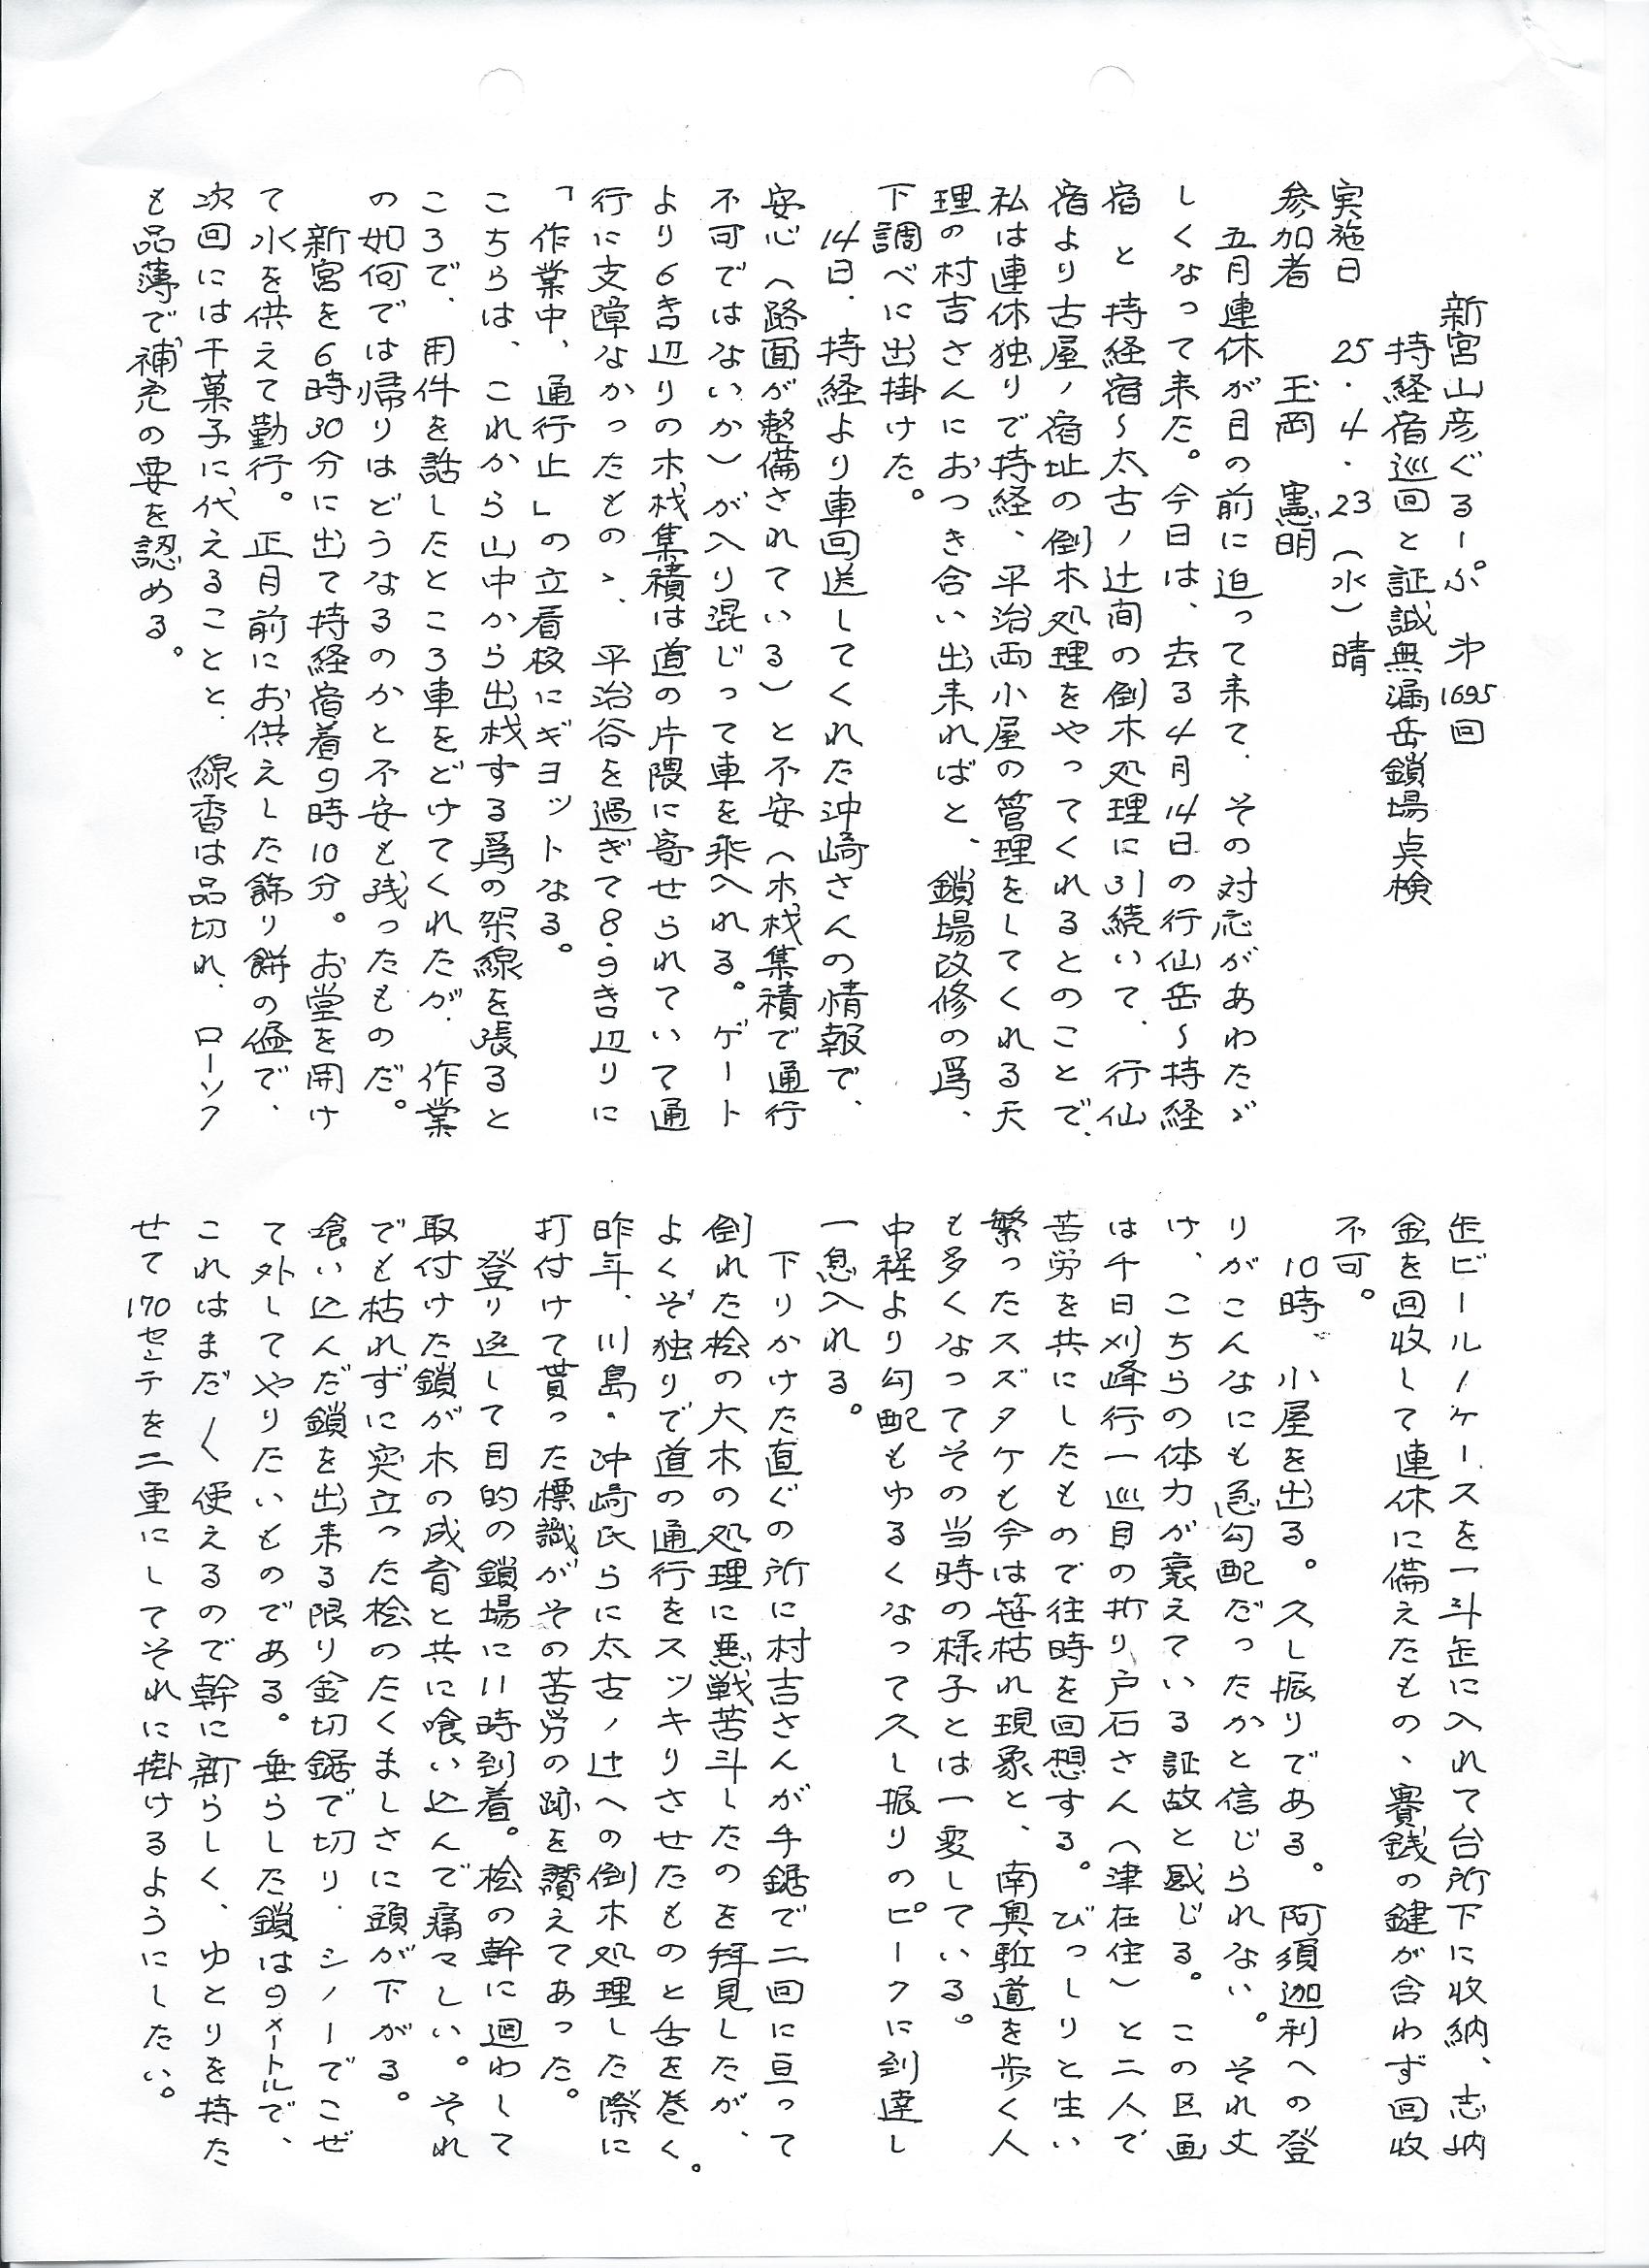 新宮山彦ぐるーぷ 第1695回
持経宿巡回と証誠無漏岳鎖場点検
実施日 25・4・23(水)晴
参加者 玉岡 憲明
五月連休が目の前に迫って来て、その対応があわたゞ
しくなって来た。今日は、去る4月14日の行仙岳〜持経
宿と持経宿〜太古ノ辻間の倒木処理に引続いて、行仙
宿より古屋ノ宿址の倒木処理をやってくれるとのことで、
私は連休独りで持経、平治両小屋の管理をしてくれる天
理の村吉さんにおつき合い出来ればと、鎖場改修の為、
下調べに出掛けた。
14日、持経より車回送してくれた沖崎さんの情報で、
安心(路面が整備されている)と不安(木材集積で通行
不可ではないか)が入り混じって車を乗入れる。ゲート
より6き辺りの木材集積は道の片隈に寄せられていて通
行に支障なかったものゝ、平治谷を過ぎて8.9き辺りに
「作業中、通行止」の立看板にギョットなる。
こちらは、これから山中から出材する為の架線を張ると
ころで、用件を話したところ車をどけてくれたが、作業
の如何では帰りはどうなるのかと不安も残ったものだ。
新宮を6時30分に出て持経宿着9時10分。お堂を開け
て水を供えて勤行。正月前にお供えした飾り餅の儘で、
次回には干菓子に代えることと、線香は品切れ、ローソク
も品薄で補充の要を認める。
缶ビールノケースを一斗缶に入れて台所下に収納、志納
金を回収して連休に備えたもの、賽銭の鍵が合わず回収
不可。
10時、小屋を出る。久し振りである。阿須迦利への登
りがこんなにも急勾配だったかと信じられない。それ丈
け、こちらの体力が衰えている証故と感じる。この区画
は千日刈峰行一巡目の折り戸石さん(津在住)と二人で
苦労を共にしたもので往時を回想する。びっしりと生い
繁ったスズタケも今は笹枯れ現象と、南奥駈道を歩く人
も多くなってその当時の様子とは一変している。
中程より勾配もゆるくなって久し振りのピークに到達し
一息入れる。
下りかけた直ぐの所に村吉さんが手鋸で二回に亘って
倒れた桧の大木の処理に悪戦苦斗したのを拝見したが、
よくぞ独りで道の通行をスッキりさせたものと舌を巻く。
昨年、川島・沖崎氏らに太古ノ辻への倒木処理した際に
打付けて貰った標識がその苦労の跡を讃えてあった。
登り返して目的の鎖場に11時到着。桧の幹に廻わして
取付けた鎖が木の成育と共に喰い込んで痛々しい。それ
でも枯れずに突立った桧のたくましさに頭が下がる。
喰い込んだ鎖を出来る限り金切鋸で切り、シノーでこぜ
て外してやりたいものである。垂らした鎖は9メートルで、
これはまだ〱使えるので幹に新らしく、ゆとりを持た
せて170センテを二重にしてそれに掛けるようにしたい。